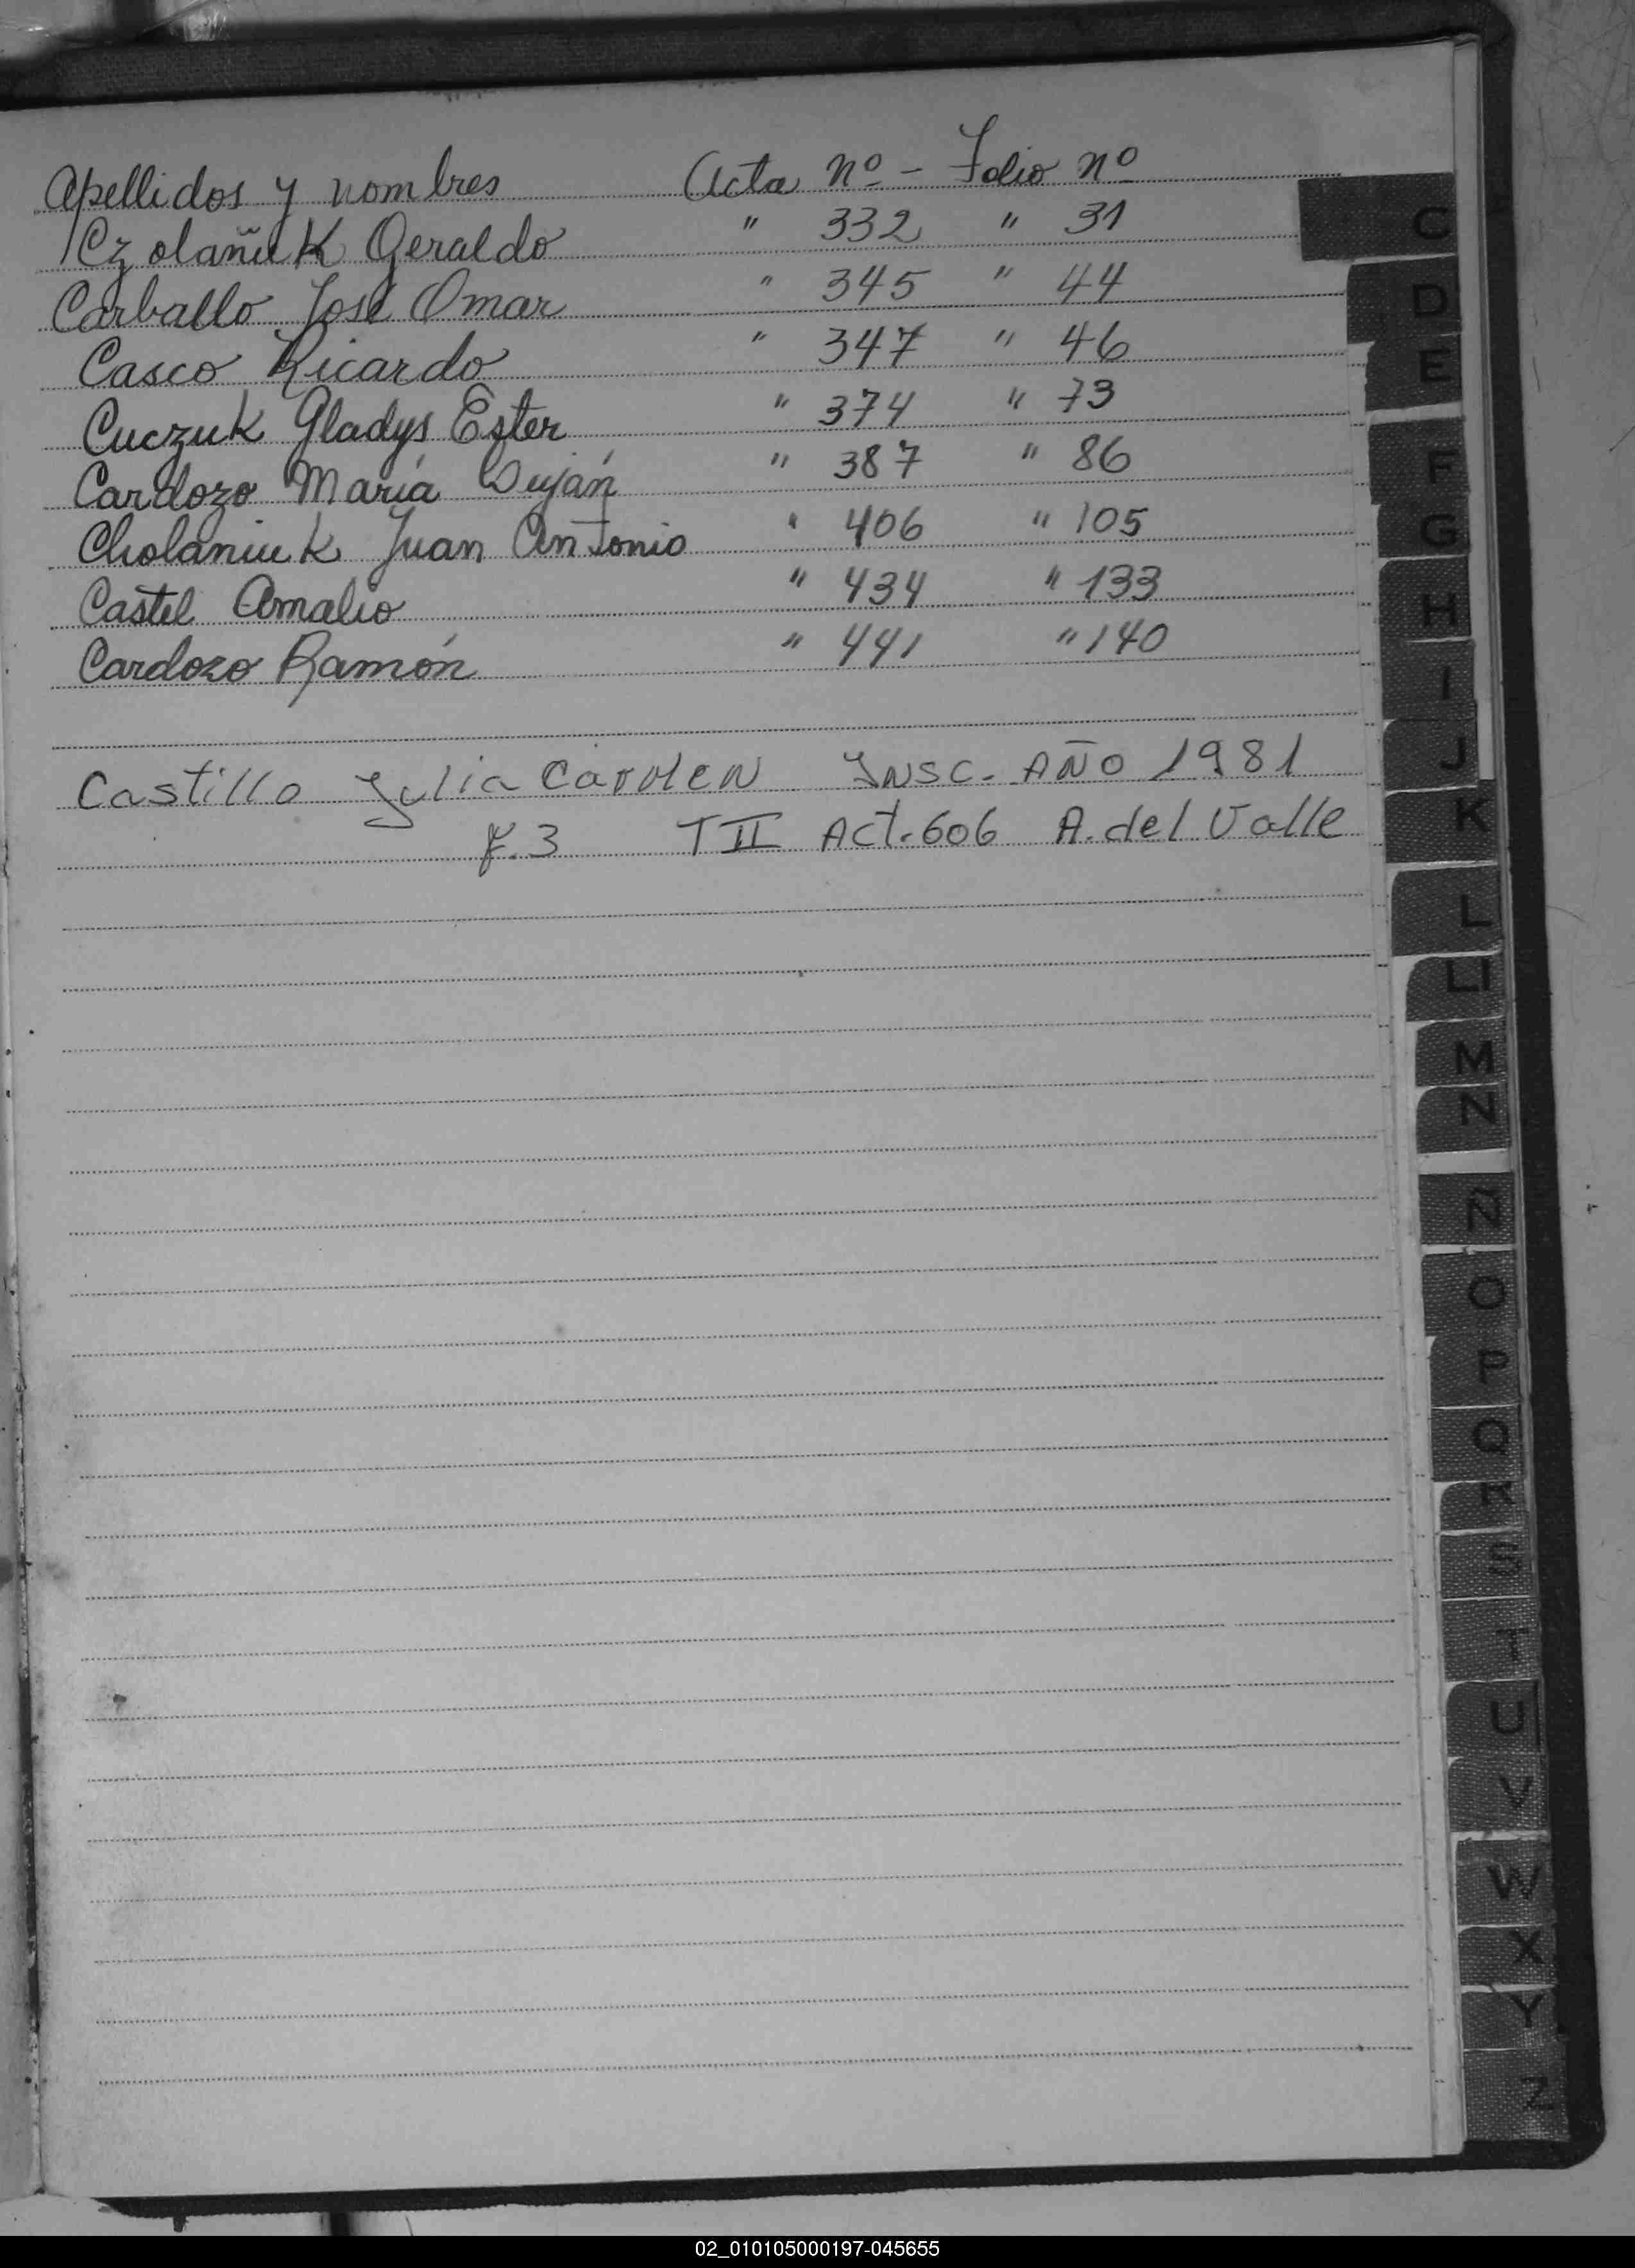 Apellidos y nombres Acta nº - Folio nº
Czolañuk Geraldo " 332 " 31
Carballo José Omar " 345 " 44
Casco Ricardo " 347 " 46
Cuczuk Gladys Ester " 374 " 73
Cardozo María Luján " 387 " 86
Cholaniuk Juan Antonio " 406 " 105
Castel Amalio " 434 " 133
Cardozo Ramón " 441 " 140
Castillo Julia Carmen Insc. AÑO 1981
f.3 T II Act.606 A. del Valle
C
D
E
F
G
H
I
J
K
L
Ll
M
N
Ñ
O
P
Q
R
S
T
U
V
W
X
Y
Z
02_010105000197-045655